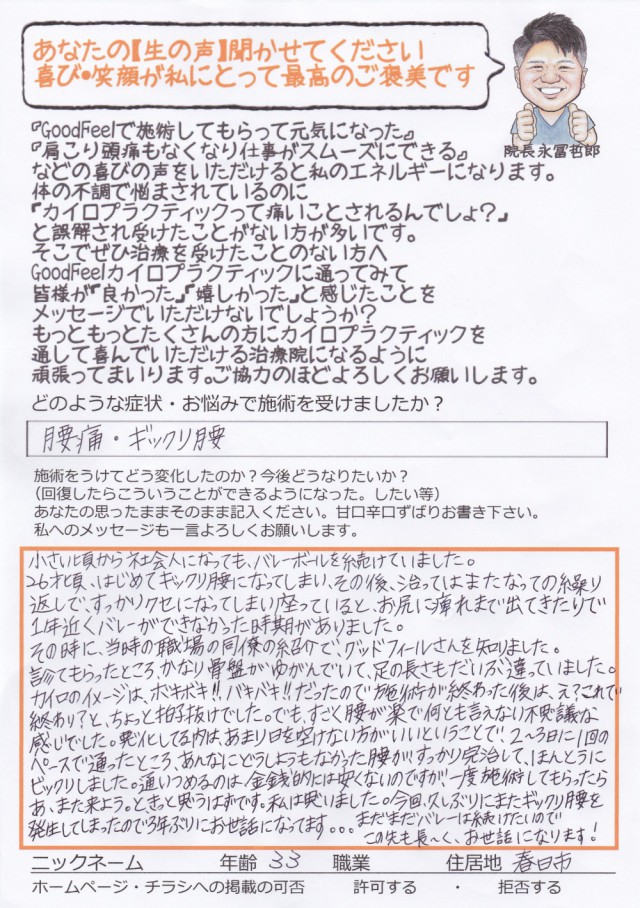 あなたの【生の声】聞かせてください
喜び•笑顔が私にとって最高のご褒美です
院長永冨哲郎
『GoodFeelで施術してもらって元気になった』
『肩こり頭痛もなくなり仕事がスムーズにできる』
などの喜びの声をいただけると私のエネルギーになります。
体の不調で悩まされているのに
『カイロプラクティックって痛いことされるんでしょ？』
と誤解され受けたことがない方が多いです。
そこでぜひ治療を受けたことのない方へ
GoodFeelカイロプラクティックに通ってみて
皆様が『良かった』『嬉しかった』と感じたことを
メッセージでいただけないでしょうか？
もっともっとたくさんの方にカイロプラクティックを
通して喜んでいただける治療院になるように
頑張ってまいります。ご協力のほどよろしくお願いします。
どのような症状・お悩みで施術を受けましたか？
腰痛・ギックリ腰
施術をうけてどう変化したのか？今後どうなりたいか？
（回復したらこういうことができるようになった。したい等）
あなたの思ったままそのまま記入ください。甘口辛口ずばりお書き下さい。
私へのメッセージも一言よろしくお願いします。
小さい頃から社会人になっても、バレーボールを続けていました。
26才頃、はじめてギックリ腰になってしまい、その後、治ってはまたなっての繰り
返しで、すっかりクセになってしまい座っていると、お尻に痺れまで出てきたりで
1年近くバレーができなかった時期がありました。
その時に、当時の職場の同僚の紹介で、グッドフィールさんを知りました。
診てもらったところ、かなり骨盤がゆがんでいて、足の長さもだいぶ違っていました。
カイロのイメージは、ボキボキ!!バキバキ!!だったので施術が終わった後は、え？これで
終わり？と、ちょっと拍子抜けでした。でも、すごく腰が楽で何とも言えない不思議な
感じでした。悪化してる内は、あまり日を空けない方がいいということで、2〜3日に1回の
ペースで通ったところ、あんなにどうしようもなかった腰が、すっかり完治して、ほんとうに
ビックリしました。通いつめるのは、金銭的には安くないのですが、一度施術してもらったら
あ、また来よう。ときっと思うはずです。私は思いました。今回、久しぶりにまたギックリ腰を
発生してしまったので3年ぶりにお世話になってます。。。まだまだバレーは続けたいので
この先も長〜く、お世話になります！
ニックネーム 年齢 33 職業 住居地 春日市
ホームページ・チラシへの掲載の可否 許可する ・ 拒否する